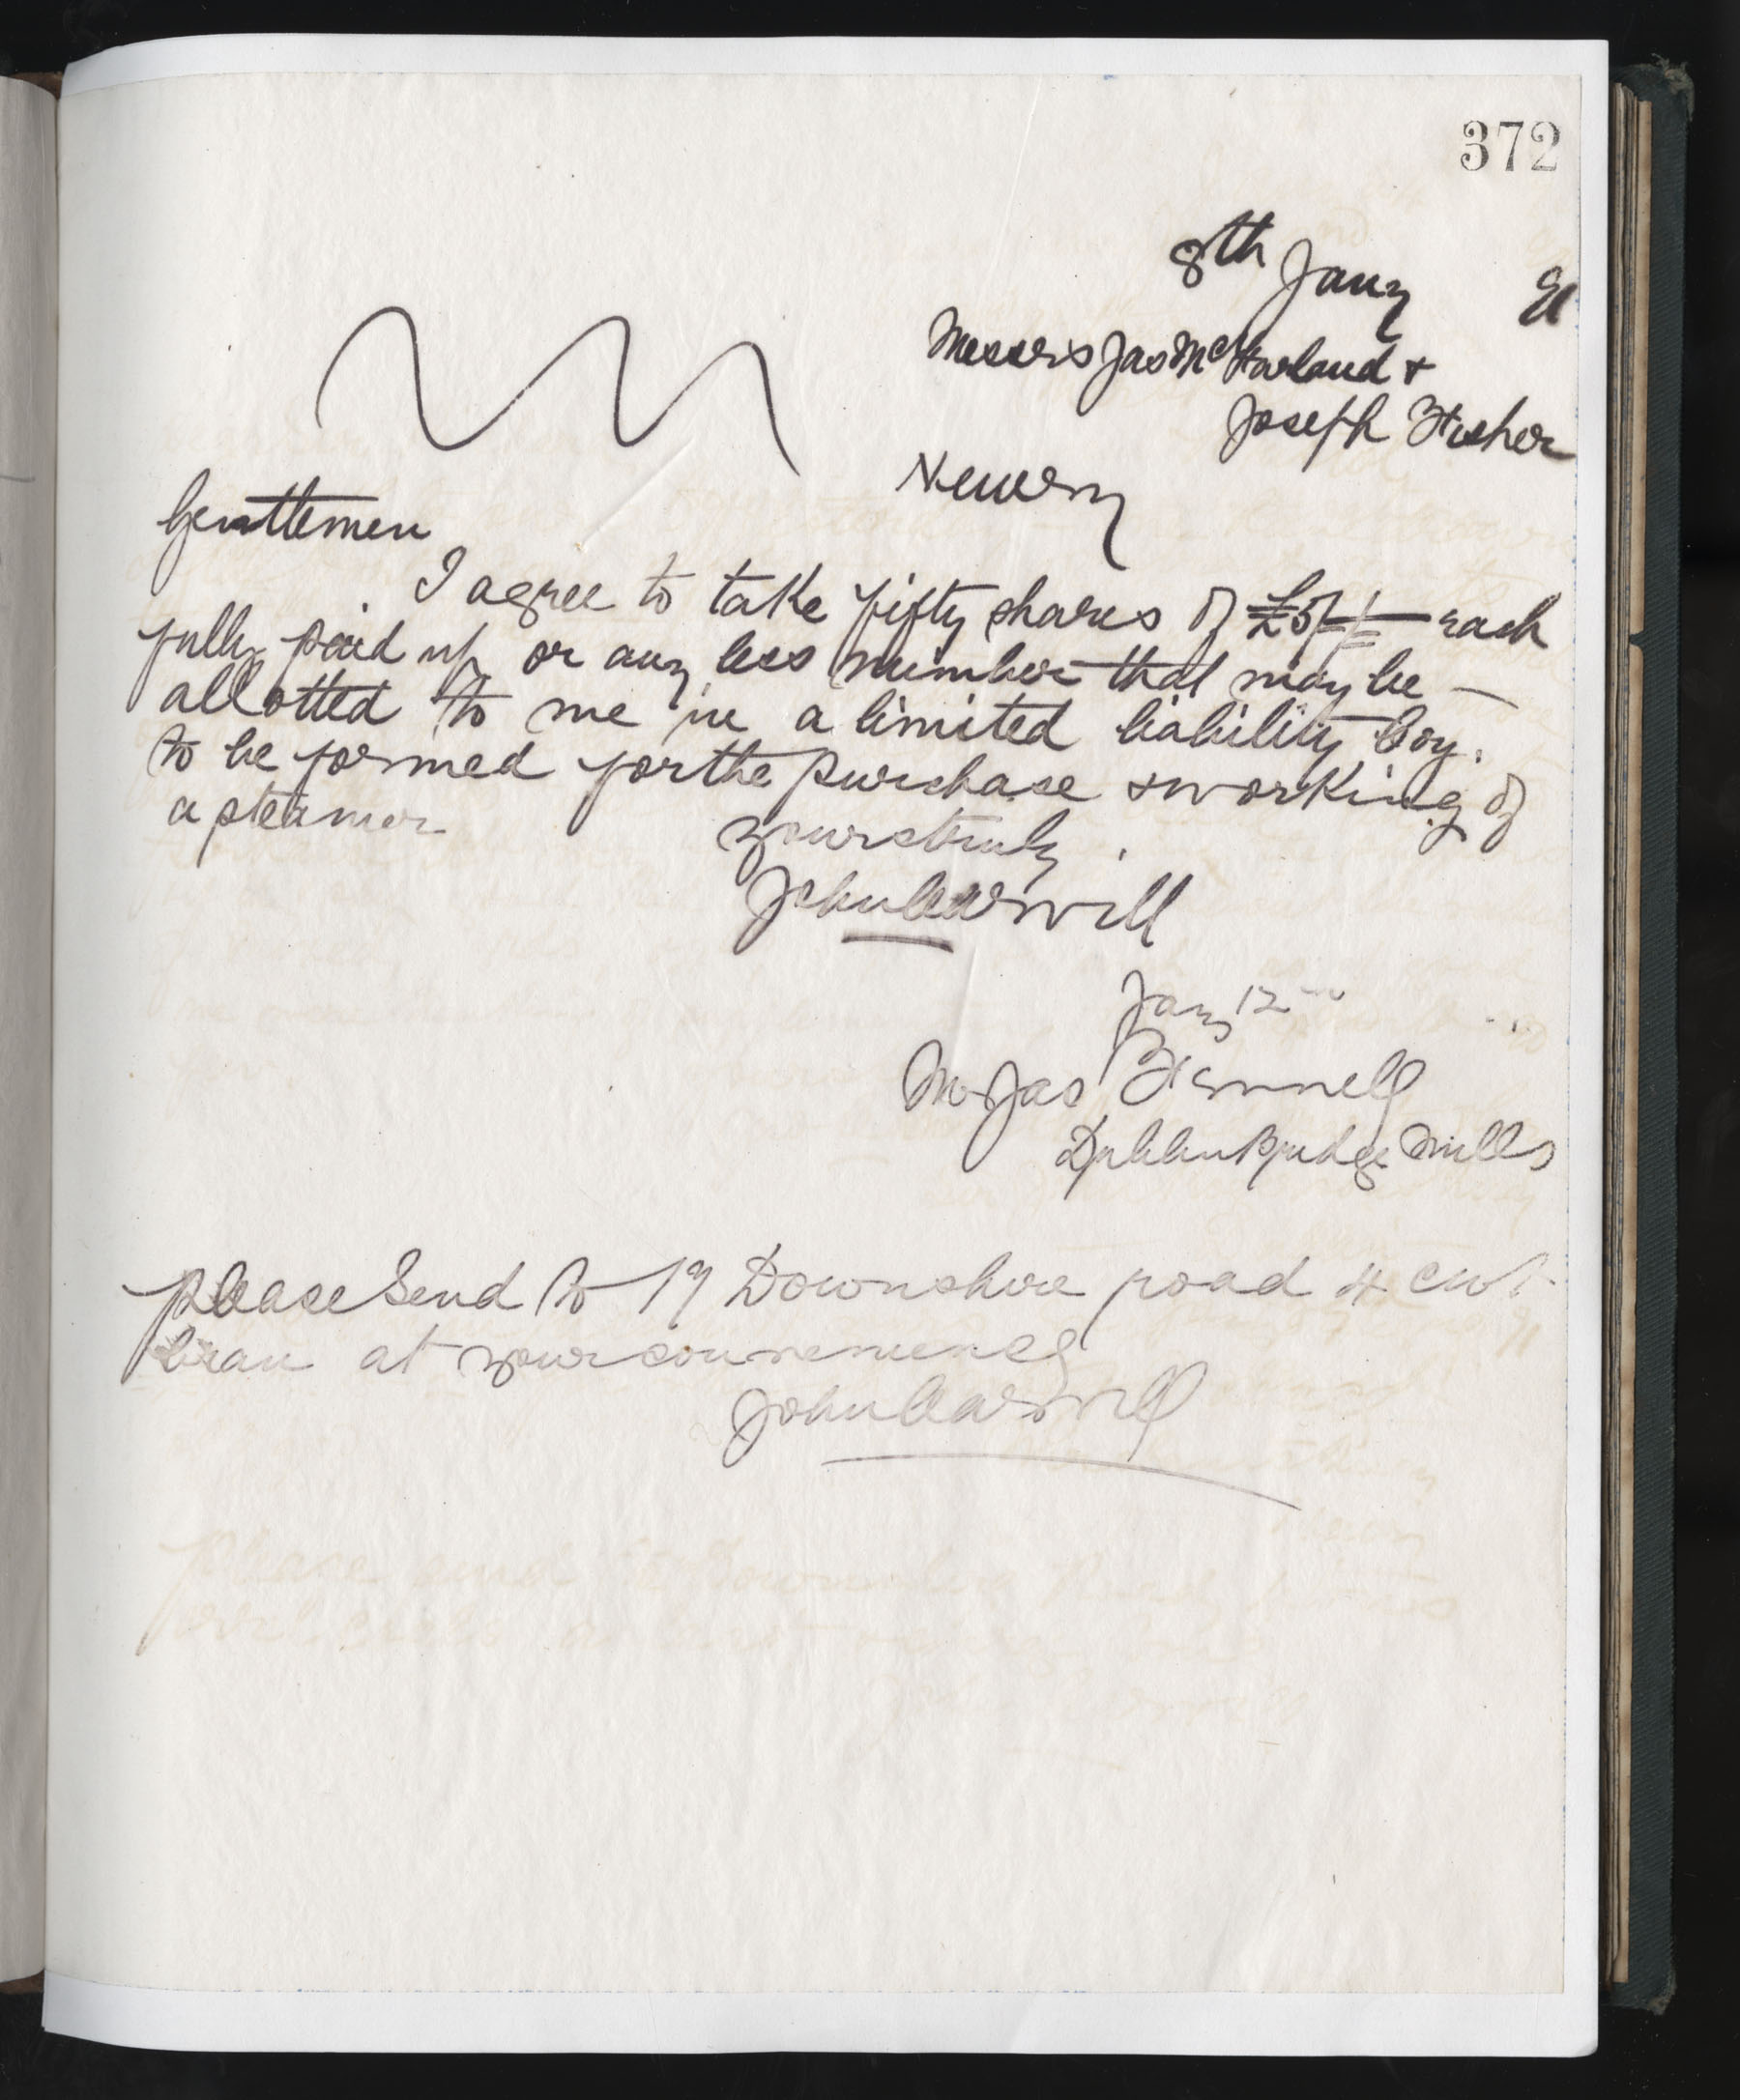 372
8th Jany 91
Messrs Jas McFarland +
Joseph Fisher
Newry
Gentlemen
I agree to take fifty shares of £5/-/- each
fully paid up or any less number that may be —
allotted to me in a limited liability Coy.
to be formed for the purchase + working of
a steamer
yours truly
John Carvill
Jany 12
Mr Jas Fennell
Dublin Bridge Mills
please send to 19 Downshire road 4 cwt
bran at your convenience
John Carvill